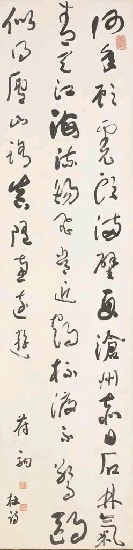 何年顧虎頭滿壁畫滄州赤日石林氣
青天江海流錫飛常近鶴杯渡不驚鷗
似得廬山路真隨惠遠遊
杜詩